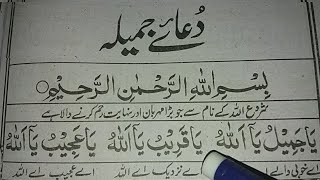 دُعائے جمیلہ
بِسْمِ اللّٰہِ الرَّحْمٰنِ الرَّحِیْمِ
شروع اللہ کے نام سے جو بڑا مہربان اور نہایت رحم کرنے والا ہے
یَا جَمِیْلُ یَآ اَللّٰہُ یَا قَرِیْبُ یَآ اَللّٰہُ یَا عَجِیْبُ یَآ اَللّٰہُ
اے خوبی والے اے اللہ اے نزدیک اے اللہ اے عجیب اے اللہ